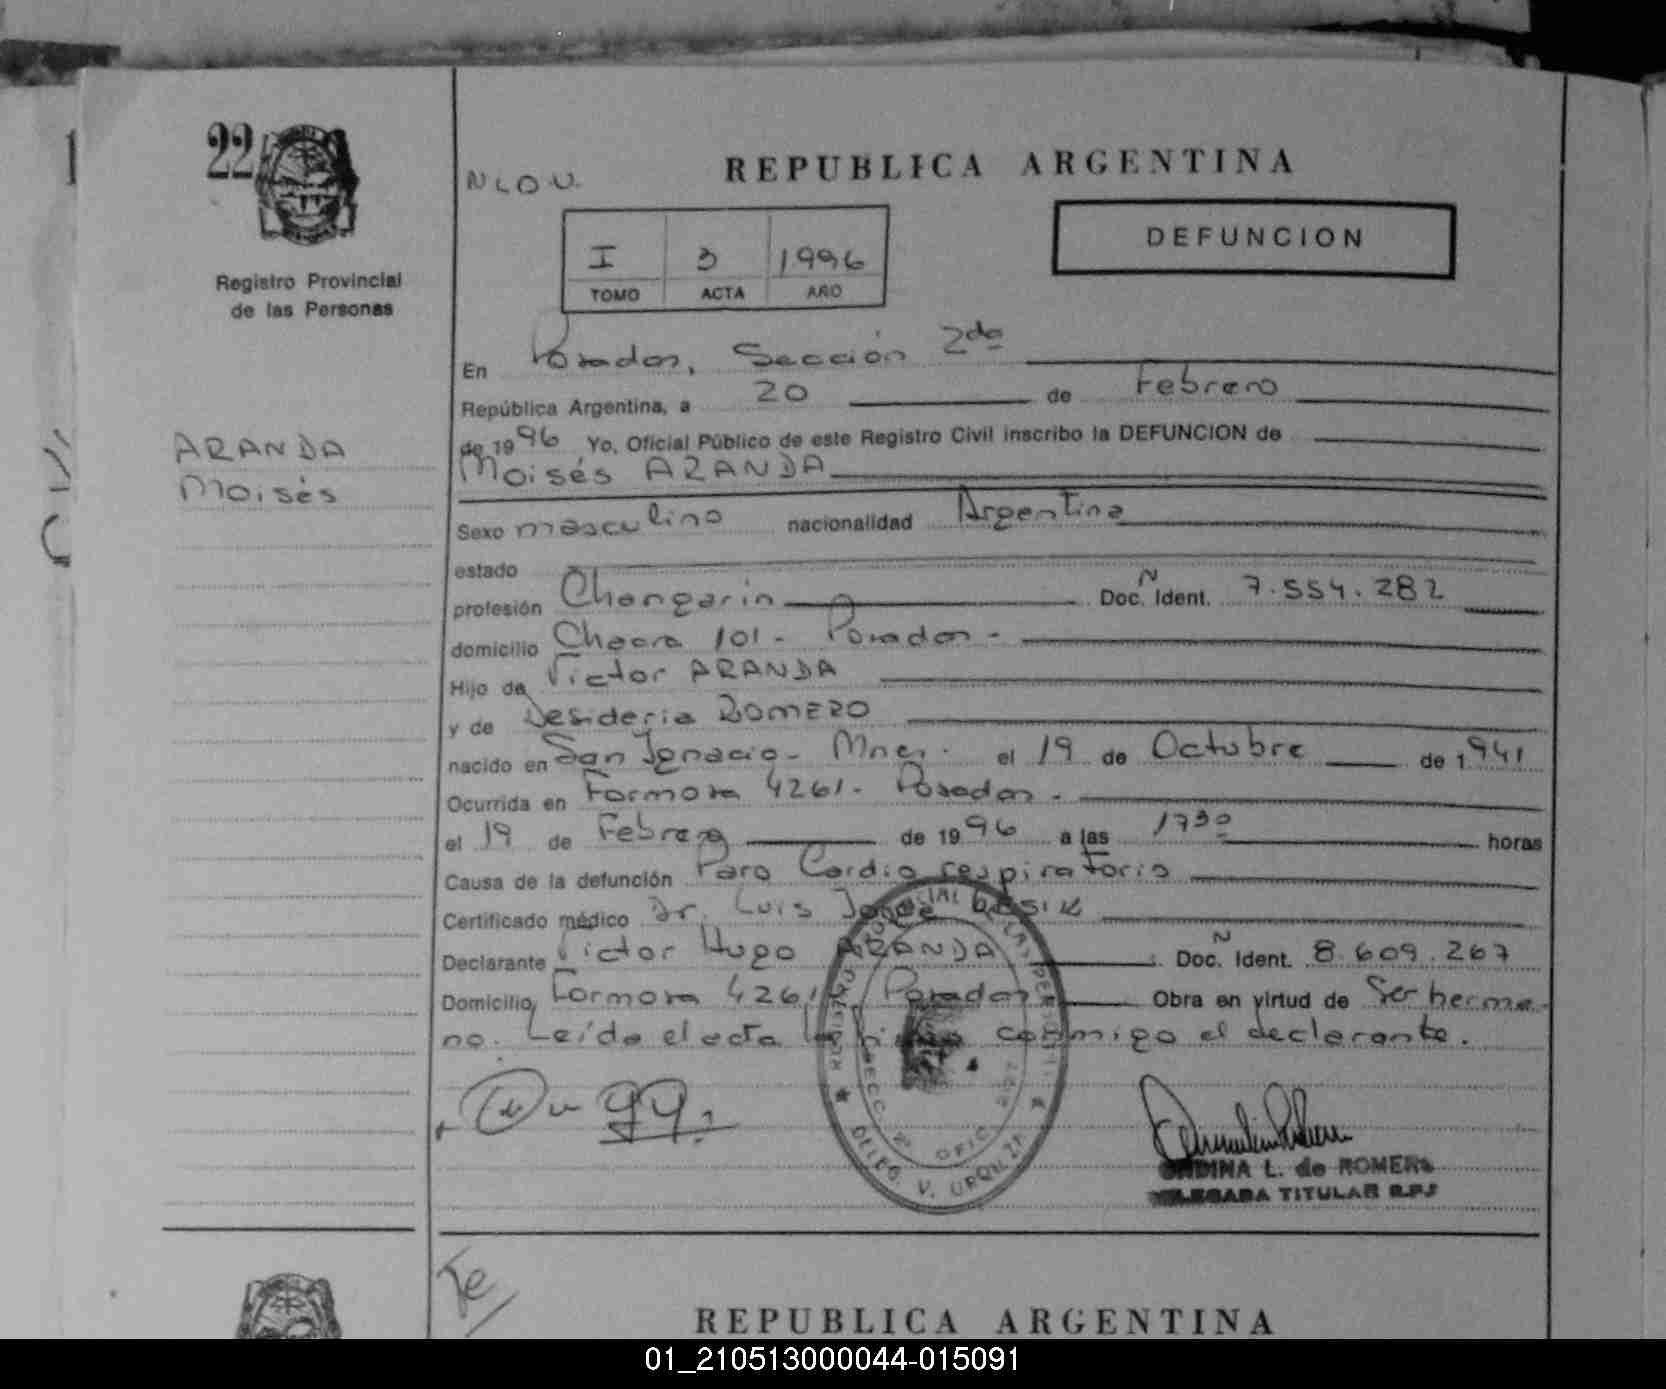 22
N L O U.
REPUBLICA ARGENTINA
Registro Provincial
de las Personas
I 3 1996
TOMO ACTA AÑO
DEFUNCION
En Posadas, Sección 2da
República Argentina, a 20 de Febrero
de 1996 Yo, Oficial Público de este Registro Civil inscribo la DEFUNCION de
Moisés ARANDA
ARANDA
Moisés
Sexo masculino nacionalidad Argentina
estado
profesión Changarín Doc. Ñ Ident. 7.554.282
domicilio Chacra 101 - Posadas -
Hijo de Victor ARANDA
y de Desideria ROMERO
nacido en San Ignacio - Mnes. el 19 de Octubre de 1941
Ocurrida en Formosa 4261 - Posadas -
el 19 de Febrero de 1996 a las 1730 horas
Causa de la defunción Paro Cardio respiratorio
Certificado médico Dr. Luis Jorge
Declarante Victor Hugo ARANDA Doc. Ñ Ident. 8.609.267
Domicilio Formosa 4261 Posadas Obra en virtud de Ser herma-
no. Leída el acta la conmigo el declarante.
SECC. 2ª OFIC.
DELEG. V. URQUIZA
ONDINA L. de ROMERO
DELEGADA TITULAR R.P.P
Te
REPUBLICA ARGENTINA
01_210513000044-015091